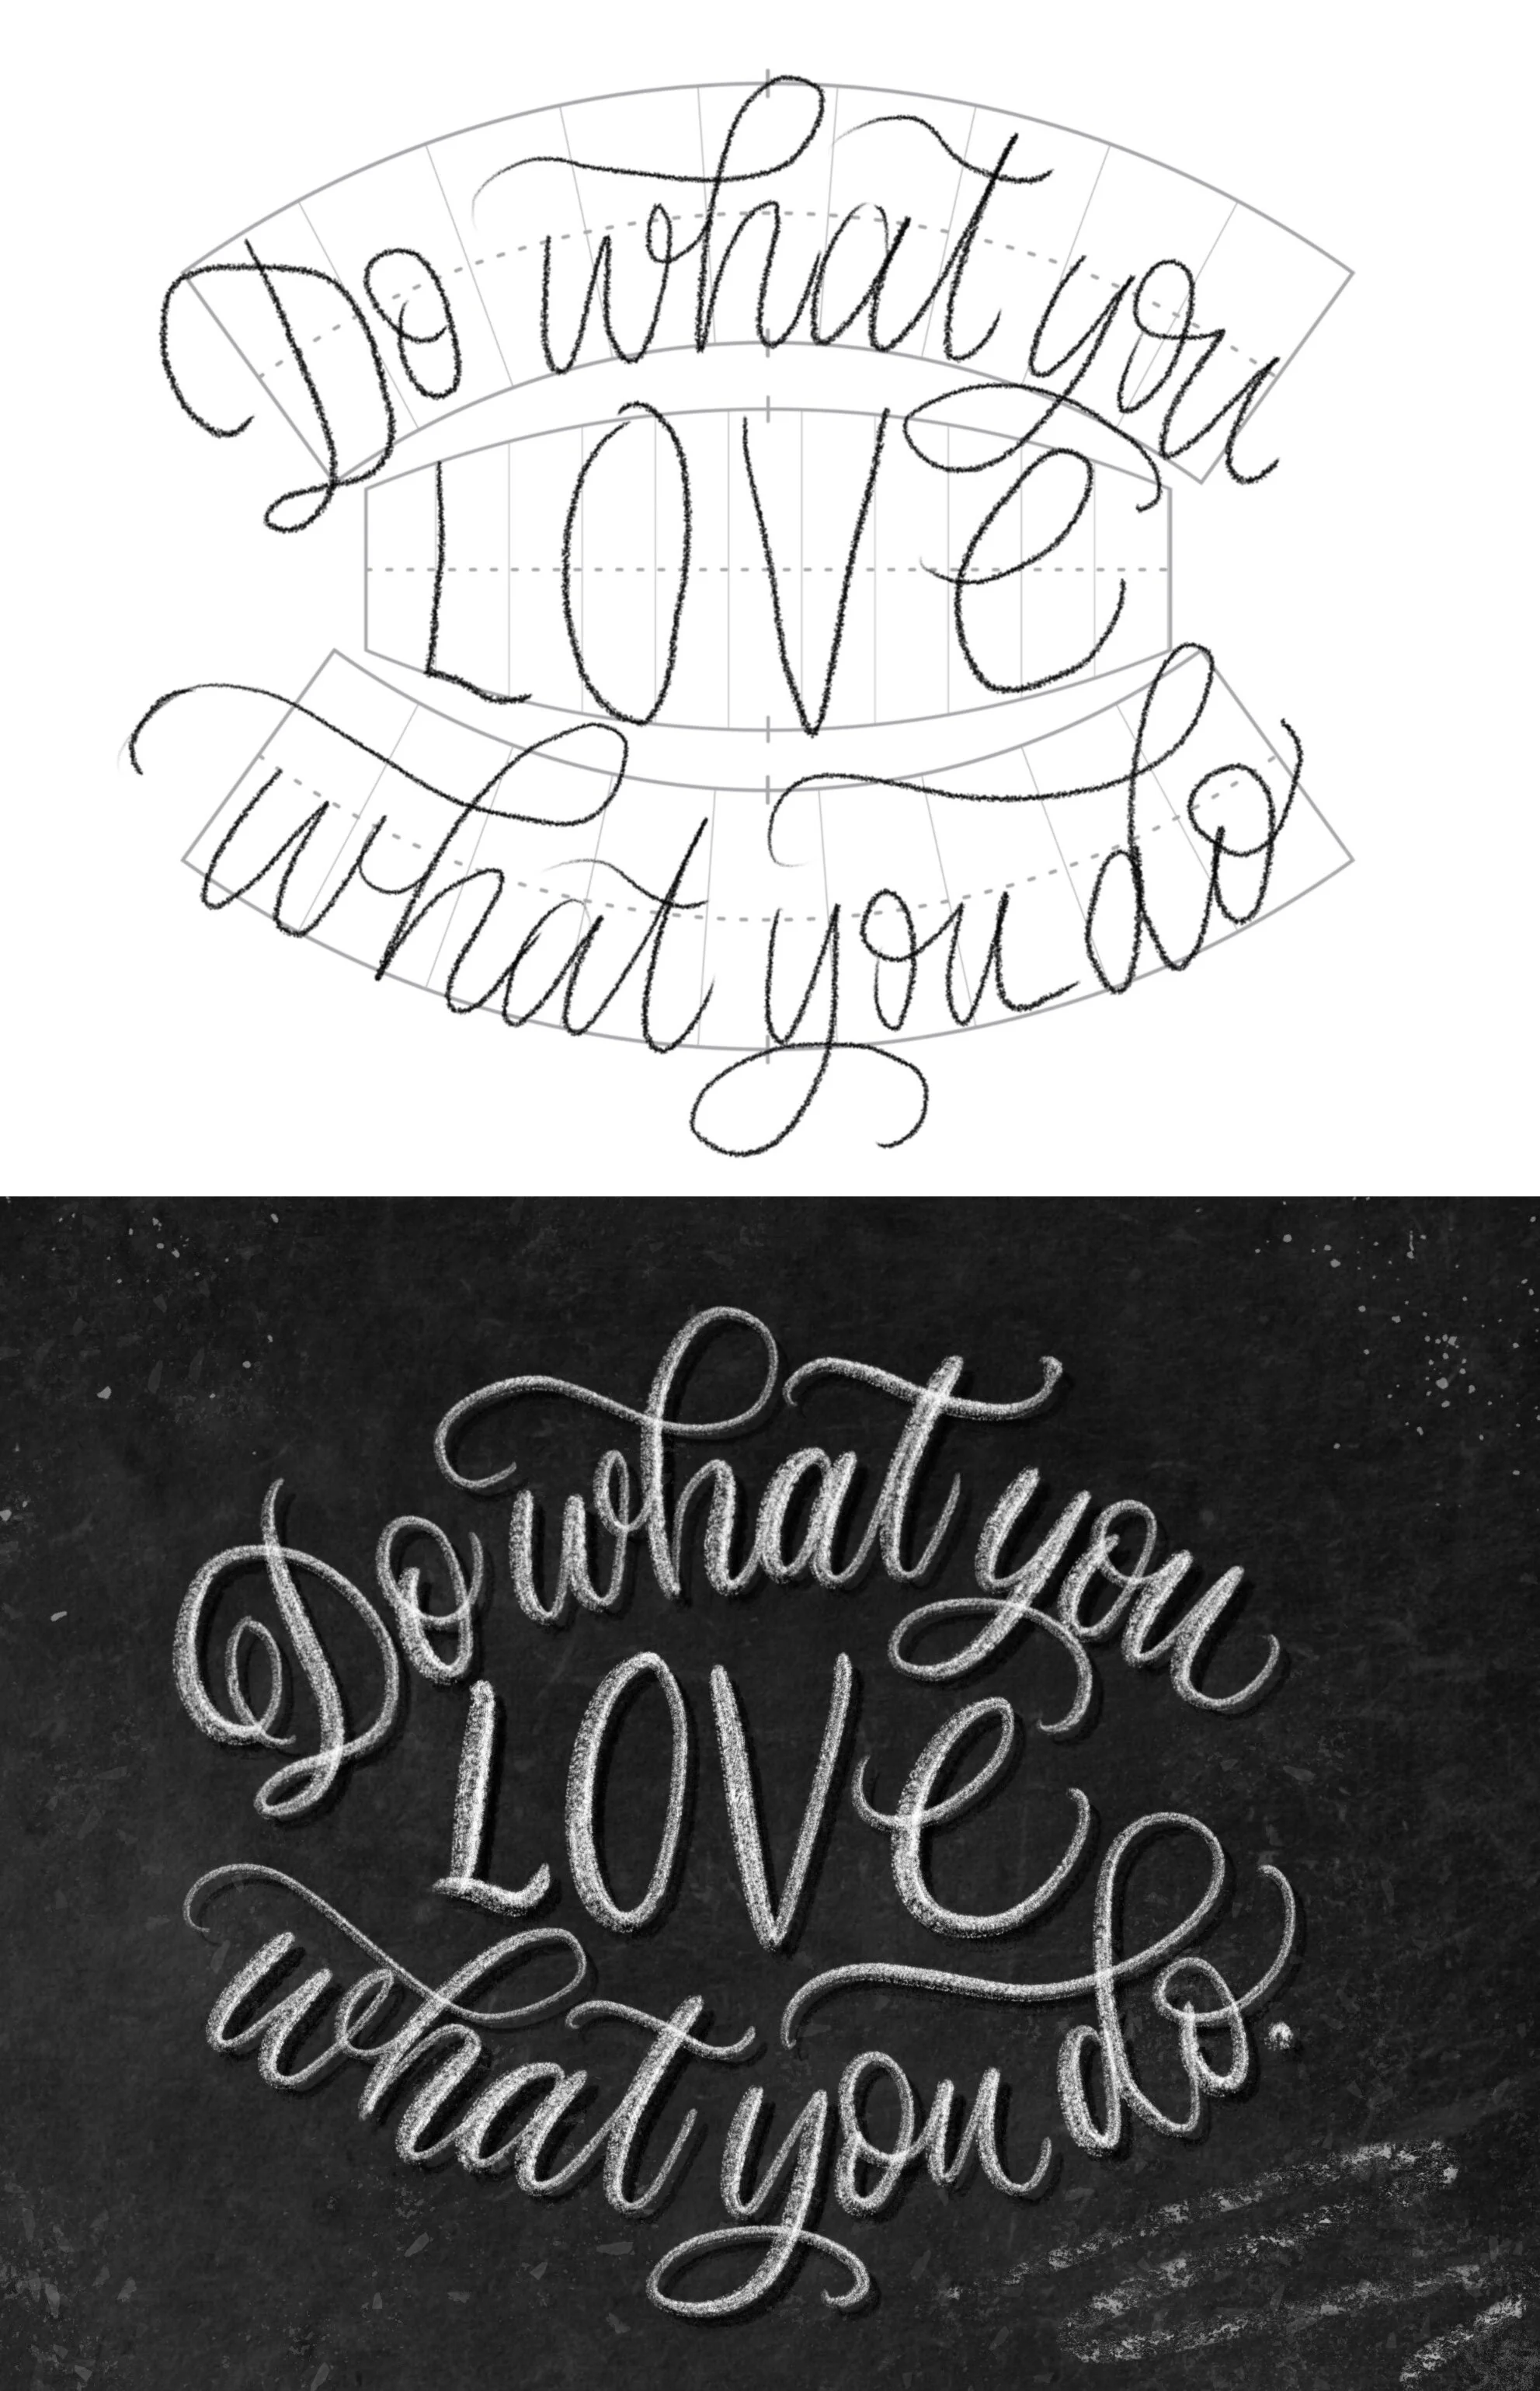 Do what you
LOVe
what you do
Do what you
LOVe
what you do.